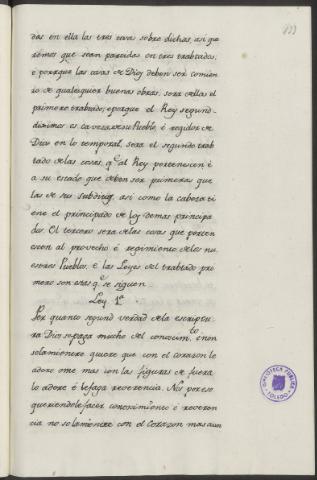 133
das en ella las tres cosas sobre dichas, asi que
remos que sean partidas en tres trabtados,
é porque las cosas de Dios deben ser comien
zo de qualesquier buenas obras, sera dellas el
primero trabtado; é porque el Rey segund
diximos es caveza de su Pueblo, é regidor de
Dios en lo temporal, sera el segundo trab
tado de las cosas, qe. al Rey pertenescen é
a su estado que deben ser primeras que
las de sus subditos, asi como la cabeza ti
ene el principado de los demas principa
dos. El tercero sera de las cosas que perten
escen al provecho é regimiento de los nu
estros Pueblos, é las Leyes del trabtado pri
mero son estas qe. se siguen.
Ley 1ª.
Por quanto segund verdad de la escriptu
ra Dios se paga mucho del conocim.to é non
solamientre quiere que con el corazon lo
adore ome mas con las figuras de fuera
lo adore é le faga reverencia. Nos por eso
queriendole facer conoscimiento é reveren
cia no solamientre con el Corazon mas aun
BIBLIOTECA PUBLICA
TOLEDO